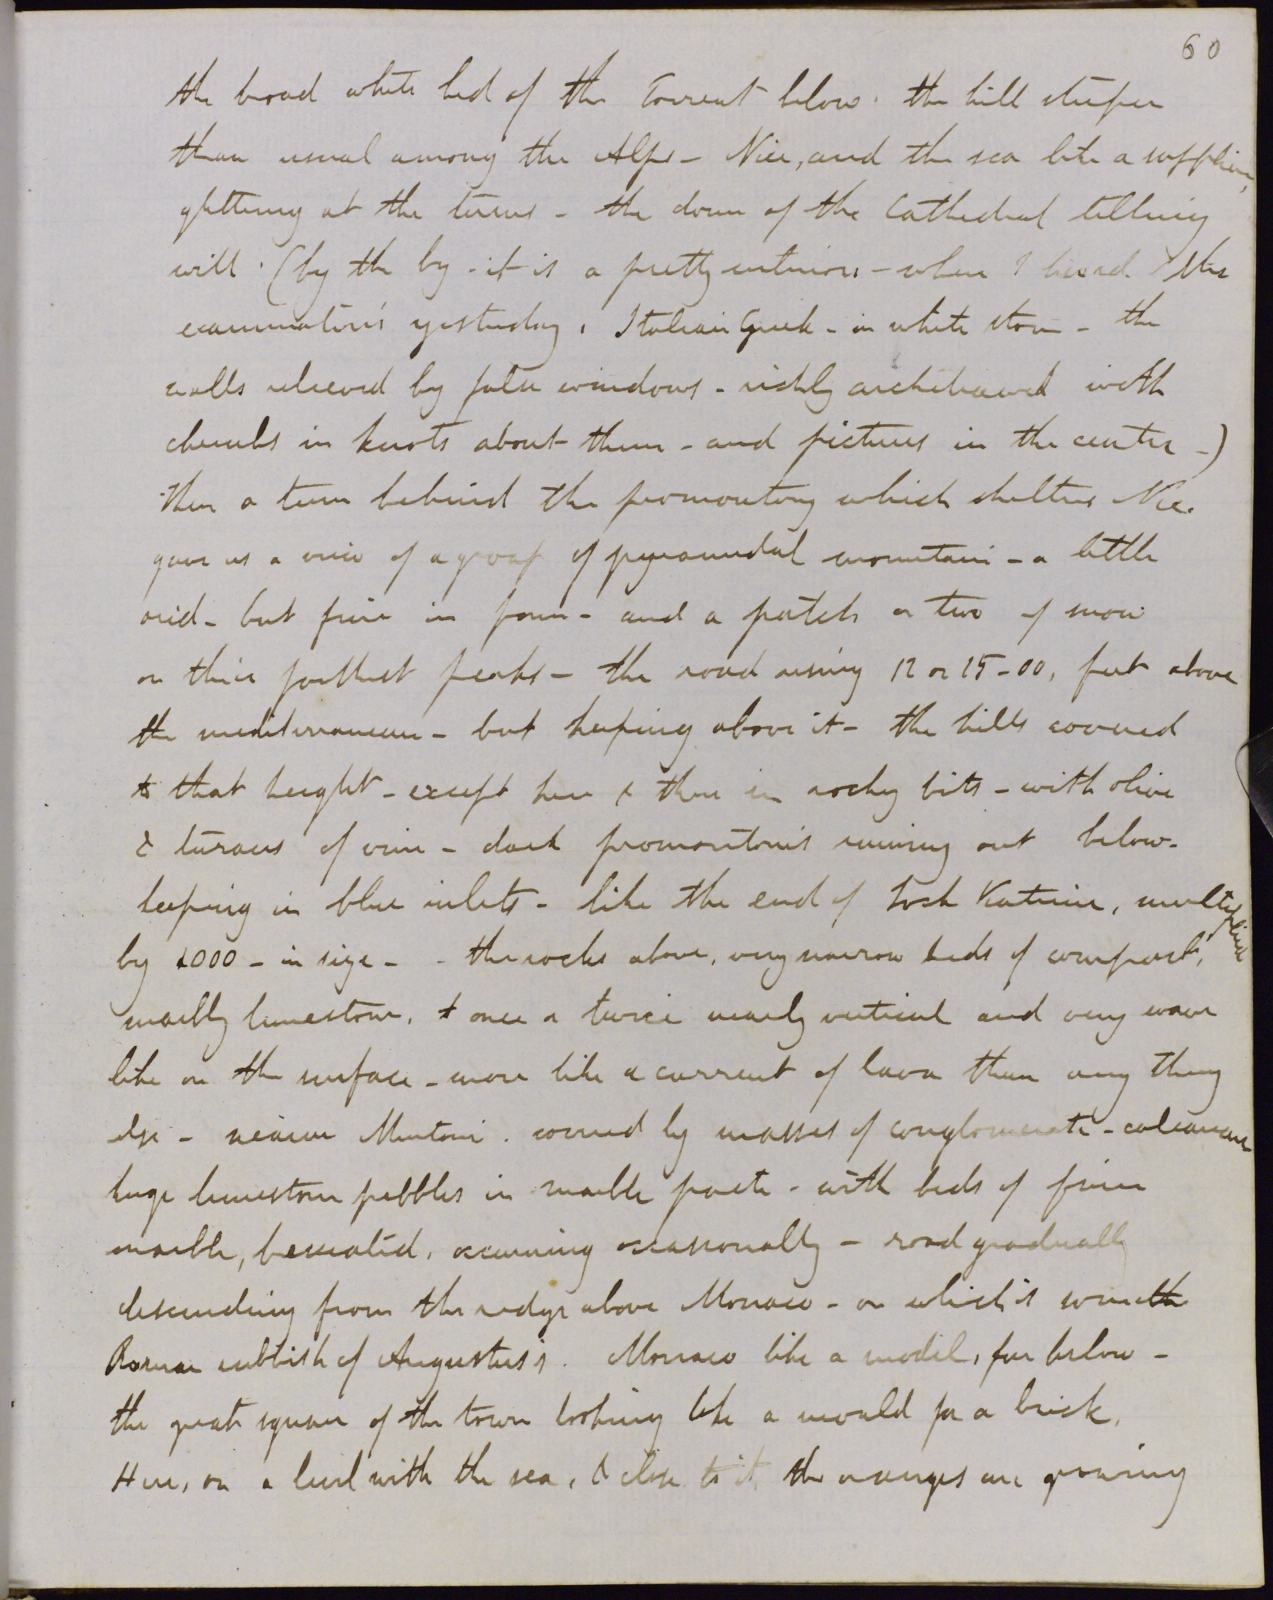 60
the broad white bed of the torrent below. the hill steeper
than usual among the Alps - Nice, and the sea like a sapphire,
glittering at the turns - the dome of the Cathedral telling
well. (by the by - it is a pretty interior - where I heard the
examinations yesterday, Italian Greek - in white stone - the
walls relieved by false windows - richly architraved with
cherubs in knots about them - and pictures in the center -)
Then a turn behind the promontory which shelters Nice.
gave us a view of a group of pyramidal mountains - a little
arid - but fine in form - and a patch or two of snow
on their farthest peaks - the road rising 12 or 15-00, feet above
the mediterranean - but keeping above it - the hills covered
to that height - except here & there in rocky bits - with olive
& terraces of vine - dark promontories running out below.
keeping in blue inlets - like the end of Loch Katrine, multiplied
by 1000 - in size - - the rocks above, very narrow beds of compact,
marbly limestone, & once or twice nearly vertical and very wave
like on the surface - more like a current of lava than any thing
else - nearer Mentone. covered by masses of conglomerate - calcareous
huge limestone pebbles in marble paste - with beds of finer
marble, brecciated, occurring occasionally - road gradually
descending from the ridge above Monaco - on which is some
Roman rubbish of Augustus's. Monaco like a model, far below -
the great square of the town looking like a mould for a brick.
Here, on a level with the sea, & close to it, the oranges are growing